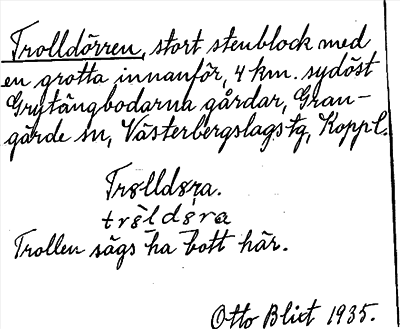 Trolldörren, stort stenblock med
en grotta innanför, 4 km. sydöst
Grytängbodarna gårdar, Gran-
gärde sn, Västerbergslags tg, Koppl.
Trølldøra.
trøldøra
Trollen sägs ha bott här.
Otto Blixt 1935.